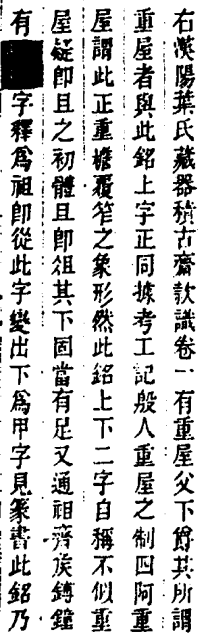 右漢陽葉氏藏器積古齋款識卷一有重屋父下爵其所謂
重屋者與此銘上字正同據考工記殷人重屋之制四阿重
屋謂此正重檐覆笮之象形然此銘上下二字自稱不似重
屋疑即且之初體且即俎其下固當有足又通祖齊矦鎛鐘
有字釋爲祖即從此字變出下爲甲字見篆書此銘乃